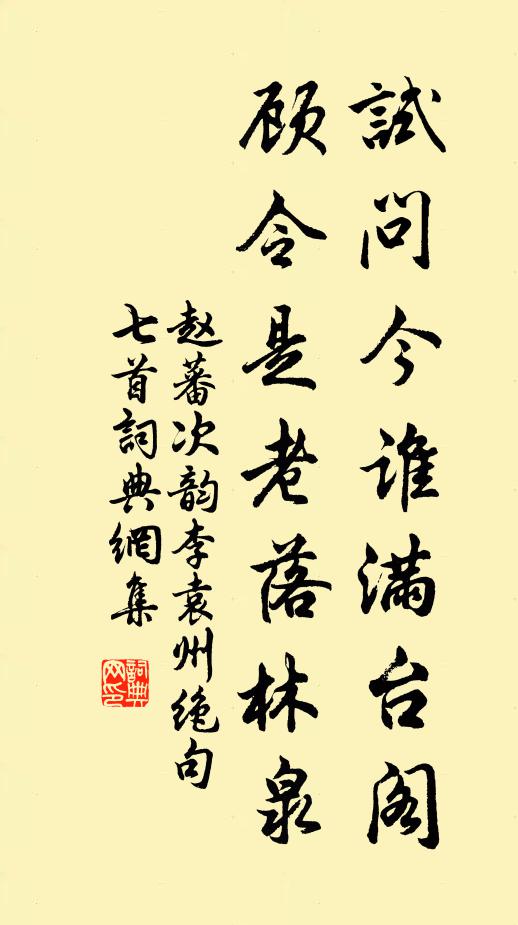 試问今谁满台阁
顾令是老落林泉
赵蕃次韵李袁州绝句
七首詞典網集
詞典网印